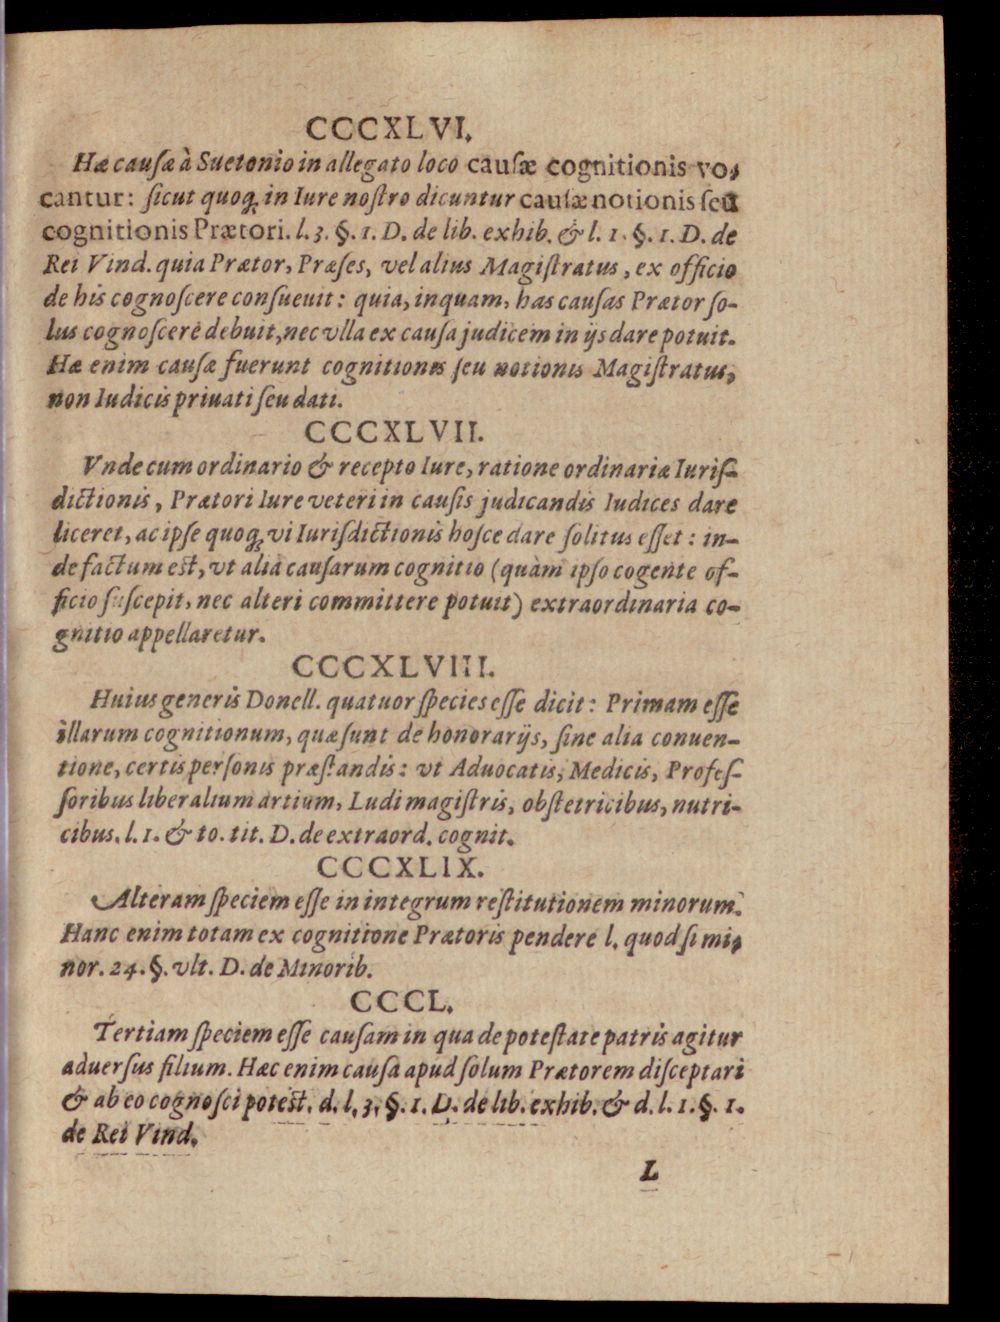 CCCXLVI.
Hæ cauſæ à Suetonio in allegato loco cauſæ cognitionis vo-
cantur: ſicut quoq; in Iure noſtro dicuntur cauſæ notionis ſeu
cognitionis Prætori. l. 3. §. 1. D. de lib. exhib. & l. 1. §. 1. D. de
Rei Vind. quia Prætor, Præſes, vel alius Magiſtratus, ex officio
de his cognoſcere conſueuit: quia, inquam, has cauſas Prætor ſo-
lus cognoſcere debuit, nec vlla ex cauſa judicem in ijs dare potuit.
Hæ enim cauſæ fuerunt cognitionis ſeu notionis Magiſtratus,
non Iudicis priuati ſeu dati.
CCCXLVII.
Vnde cum ordinario & recepto Iure, ratione ordinariæ Iuriſ-
dictionis, Prætori Iure veteri in cauſis judicandis Iudices dare
liceret, ac ipſe quoq; vi Iuriſdictionis hoſce dare ſolitus eſſet: in-
de factum est, vt alia cauſarum cognitio (quàm ipſo cogente of-
ficio ſuſcepit, nec alteri committere potuit) extraordinaria co-
gnitio appellaretur.
CCCXLVIII.
Huius generis Donell. quatuor ſpecies eſſe dicit: Primam eſſe
illarum cognitionum, quæ ſunt de honorarijs, ſine alia conuen-
tione, certis perſonis præſtandis: vt Aduocatis, Medicis, Profeſ-
ſoribus liberalium artium, Ludimagiſtris, obſtetricibus, nutri-
cibus. l. 1. & to. tit. D. de extraord. cognit.
CCCXLIX.
Alteram ſpeciem eſſe in integrum reſtitutionem minorum.
Hanc enim totam ex cognitione Prætoris pendere l. quod ſi mi-
nor. 24. §. vlt. D. de Minorib.
CCCL.
Tertiam ſpeciem eſſe cauſam in qua de poteſtate patris agitur
aduerſus filium. Hæc enim cauſa apud ſolum Prætorem diſceptari
& ab eo cognoſci potest. d. l. 3. §. 1. D. de lib. exhib. & d. l. 1. §. 1.
de Rei Vind.
L